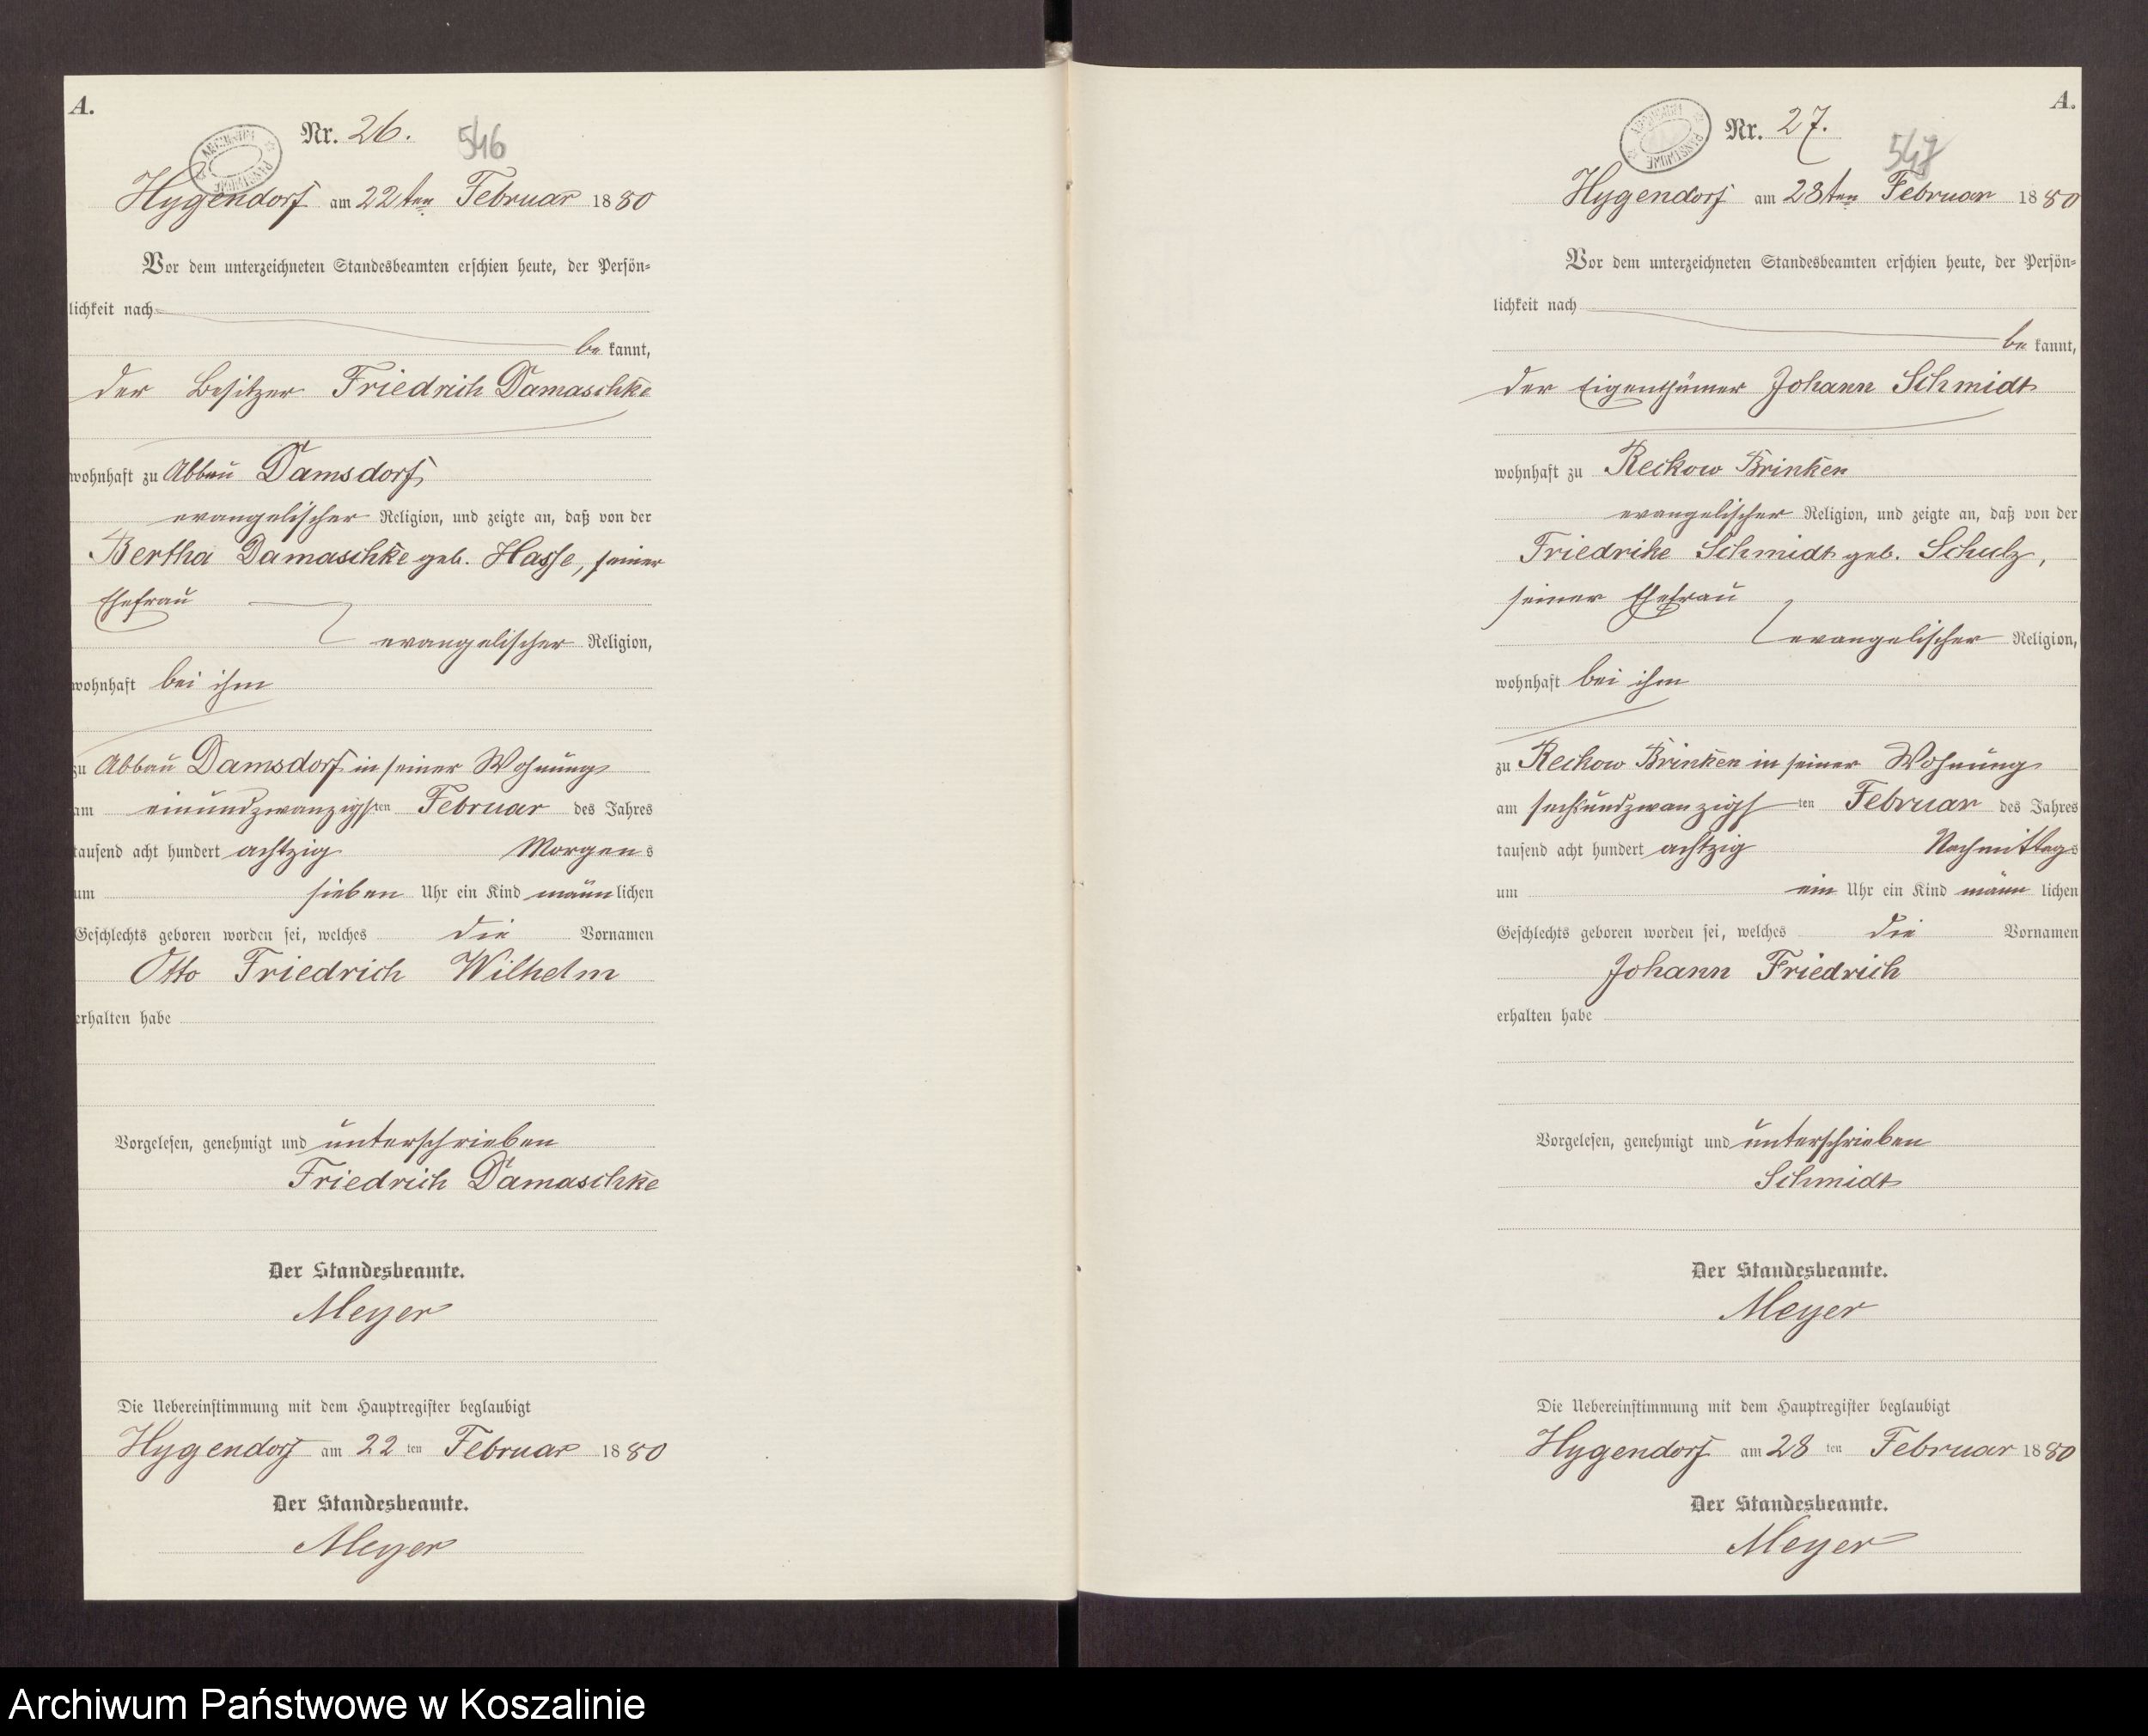 A.
Nr. 26.
546
Hygendorf am 22ten Februar 1880
Vor dem unterzeichneten Standesbeamten erschien heute, der Persön-
lichkeit nach
be kannt,
der Besitzer Friedrich Damaschke
wohnhaft zu Abbau Damsdorf,
evangelischer Religion, und zeigte an, daß von der
Bertha Damaschke geb. Hasse, seiner
Ehefrau
evangelischer Religion,
wohnhaft bei ihm
zu Abbau Damsdorf in seiner Wohnung
am einundzwanzigsten Februar des Jahres
tausend acht hundert achtzig Morgens
um sieben Uhr ein Kind männlichen
Geschlechts geboren worden sei, welches die Vornamen
Otto Friedrich Wilhelm
erhalten habe
Vorgelesen, genehmigt und unterschrieben
Friedrich Damaschke
Der Standesbeamte.
Meyer
Die Uebereinstimmung mit dem Hauptregister beglaubigt
Hygendorf am 22 ten Februar 1880
Der Standesbeamte.
Meyer
A.
Nr. 27.
547
Hygendorf am 28ten Februar 1880
Vor dem unterzeichneten Standesbeamten erschien heute, der Persön-
lichkeit nach
be kannt,
der Eigenthümer Johann Schmidt
wohnhaft zu Reckow Brinken
evangelischer Religion, und zeigte an, daß von der
Friedrike Schmidt geb. Schulz,
seiner Ehefrau
evangelischer Religion,
wohnhaft bei ihm
zu Reckow Brinken in seiner Wohnung
am sechsundzwanzigsten Februar des Jahres
tausend acht hundert achtzig Nachmittags
um ein Uhr ein Kind männ lichen
Geschlechts geboren worden sei, welches die Vornamen
Johann Friedrich
erhalten habe
Vorgelesen, genehmigt und unterschrieben
Schmidt
Der Standesbeamte.
Meyer
Die Uebereinstimmung mit dem Hauptregister beglaubigt
Hygendorf am 28 ten Februar 1880
Der Standesbeamte.
Meyer
Archiwum Państwowe w Koszalinie